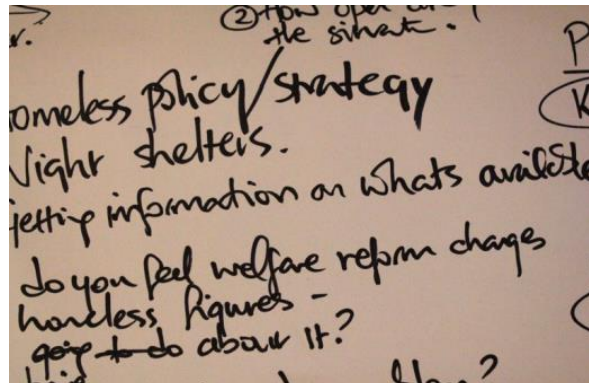 ② How open are
the situate.
omeless policy/strategy
Night shelters.
getting information on whats availcble
do you feel welfare reform changes
homeless figures -
going to do about it?